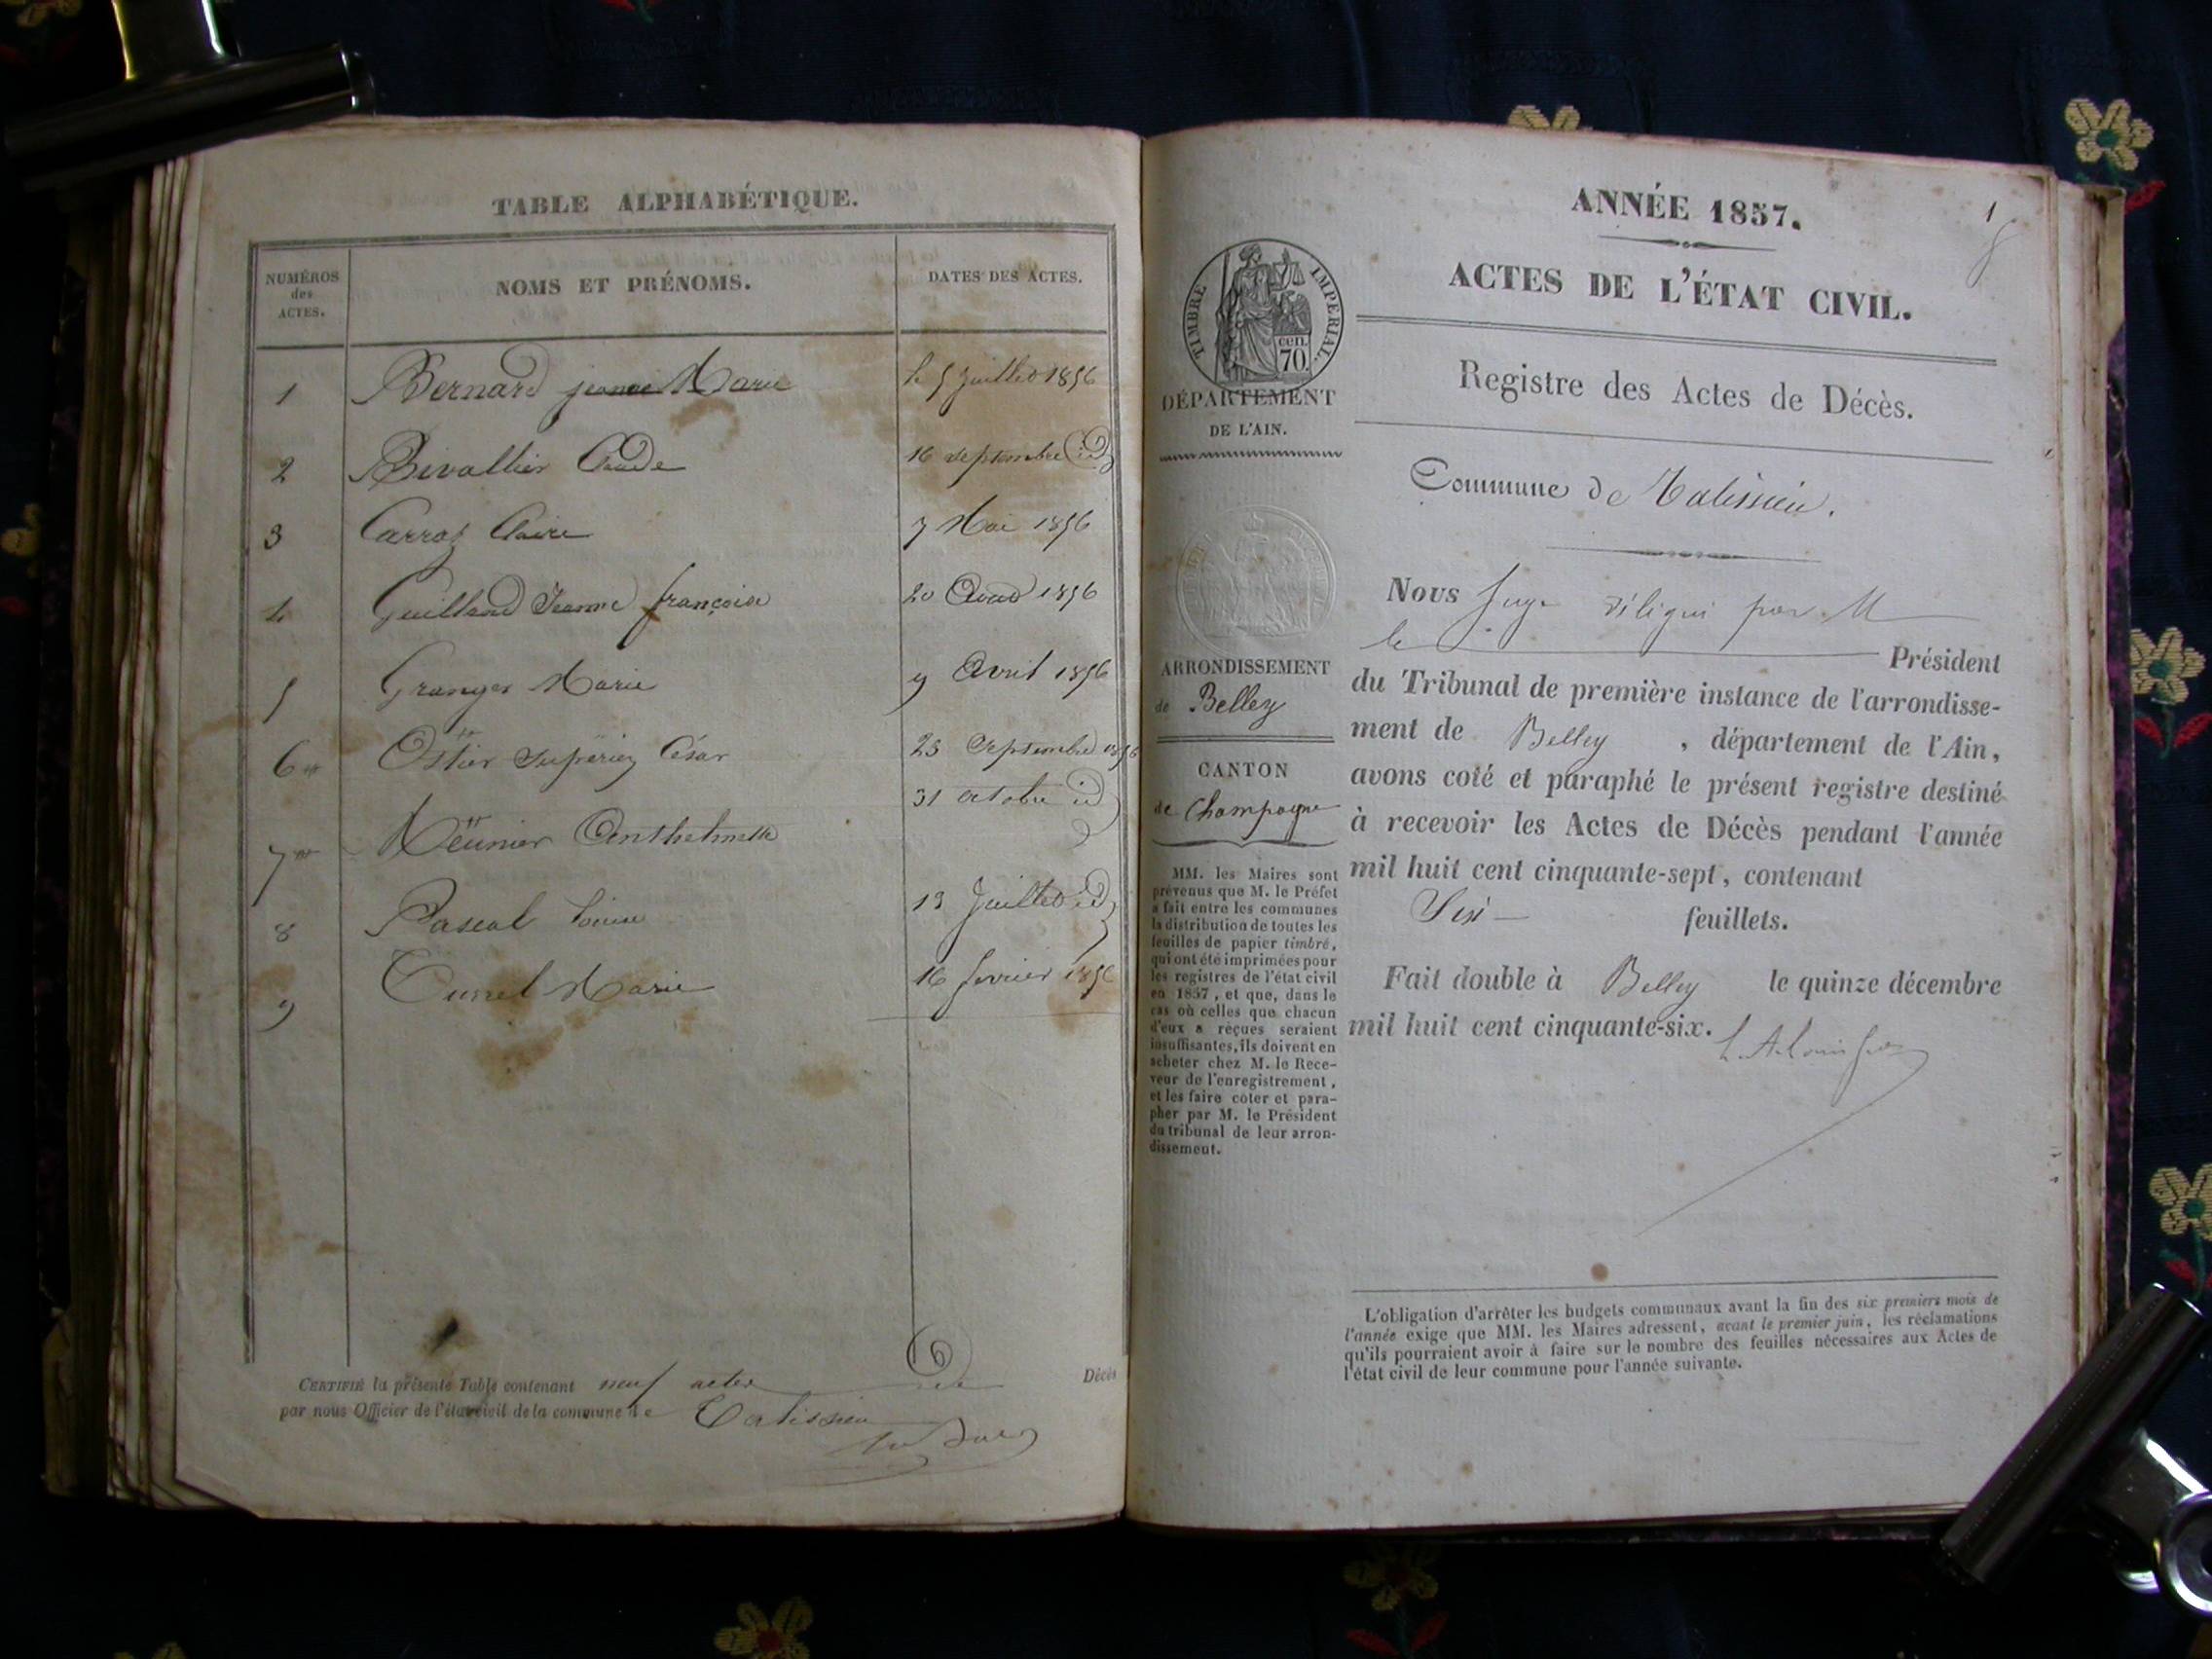 TABLE ALPHABÉTIQUE.
NUMÉROS des ACTES.
NOMS ET PRÉNOMS.
DATES DES ACTES.
1 Bernard Marie le 5 Juillet 1856
2 Bivollier Claude 16 septembre id
3 Carrot Claire 7 Mai 1856
4 Guilland Jeanne françoise 20 1856
5 Granger Marie 9 Avril 1856
6 Ostier César 23 Septembre 1856
31 octobre id
7 Meunier Anthelmette
8 Pascal Louise 13 Juillet id
9 Marie 16 fevrier 1856
16
CERTIFIÉ la présente Table contenant neuf actes de Décès
par nous Officier de l'état civil de la commune de Talissieu
1
ANNÉE 1857.
ACTES DE L'ÉTAT CIVIL.
TIMBRE IMPERIAL.
70. cen.
DÉPARTEMENT
DE L'AIN.
Registre des Actes de Décès.
Commune de Talissieu.
Nous Juge délégué par M
le Président
du Tribunal de première instance de l'arrondisse-
ment de Belley, département de l'Ain,
avons coté et paraphé le présent registre destiné
à recevoir les Actes de Décès pendant l'année
mil huit cent cinquante-sept, contenant
Six feuillets.
Fait double à Belley le quinze décembre
mil huit cent cinquante-six.
ARRONDISSEMENT
de Belley
CANTON
de Champagne
MM. les Maires sont
prévenus que M. le Préfet
a fait entre les communes
la distribution de toutes les
feuilles de papier timbré,
qui ont été imprimées pour
les registres de l'état civil
en 1857, et que, dans le
cas où celles que chacun
d'eux a reçues seraient
insuffisantes, ils doivent en
acheter chez M. le Rece-
veur de l'enregistrement,
et les faire coter et para-
pher par M. le Président
du tribunal de leur arron-
dissement.
L'obligation d'arrêter les budgets communaux avant la fin des six premiers mois de
l'année exige que MM. les Maires adressent, avant le premier juin, les réclamations
qu'ils pourraient avoir à faire sur le nombre des feuilles nécessaires aux Actes de
l'état civil de leur commune pour l'année suivante.